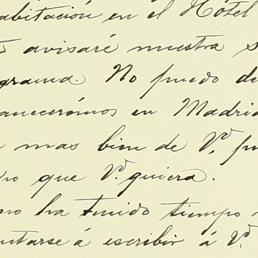 abitación en el Hotel
avisaré nuestra s
grama. No puedo de
aneceremos en Madri
mas bien de V.d pu
po que V.d quiera.
no ha tenido tiempo
ntarse á escribir á V.d